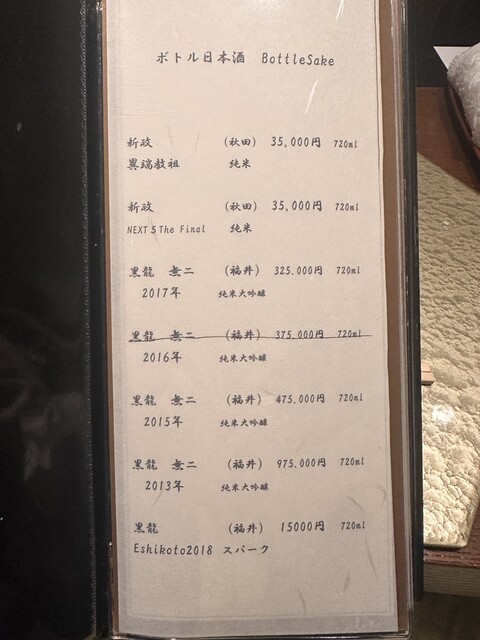 ボトル日本酒 BottleSake
新政 (秋田) 35,000円 720ml
異端教祖 純米
新政 (秋田) 35,000円 720ml
NEXT 5 The Final 純米
黒龍 無二 (福井) 325.000円 720ml
2017年 純米大吟醸
黒龍 無二 (福井) 375.000円 720ml
2016年 純米大吟醸
黒龍 無二 (福井) 475.000円 720ml
2015年 純米大吟醸
黒龍 無二 (福井) 975.000円 720ml
2013年 純米大吟醸
黒龍 (福井) 15000円 720ml
Eshikoto2018 スパーク